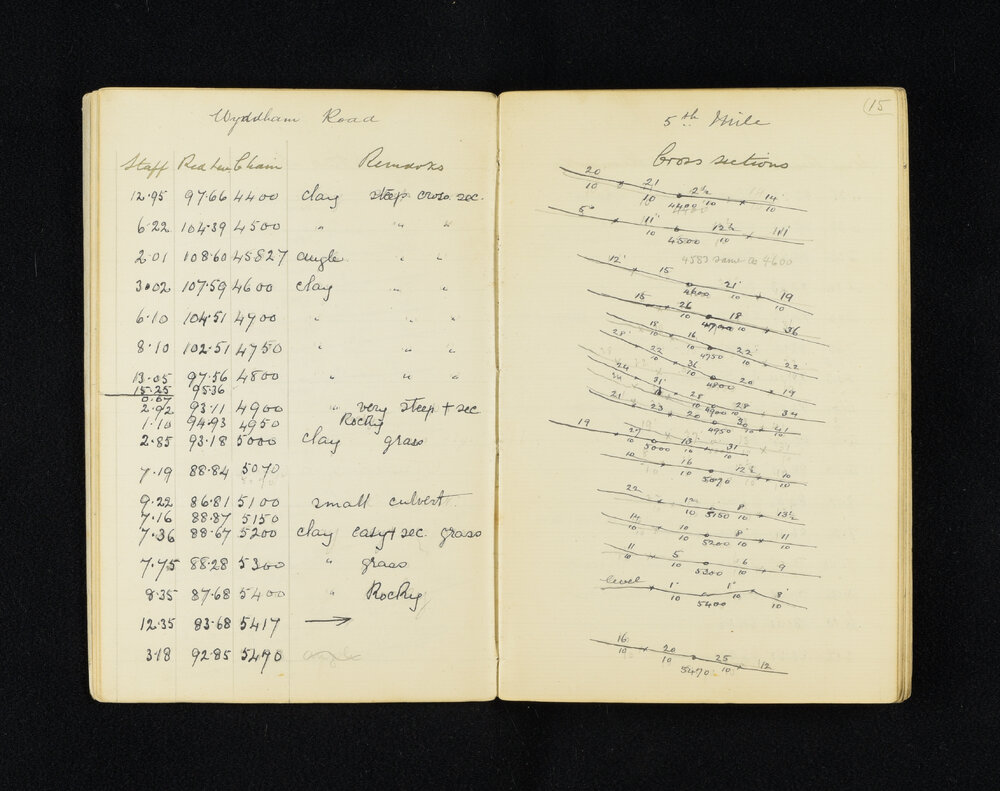 Wyndham Road
Staff Red Lev Chain Remarks
12.95 97.66 4400 clay steep cross sec.
6.22 104.39 4500 " " "
2.01 108.60 4582 7 angle " "
3.02 107.59 4600 clay " "
6.10 104.51 4700 " " "
8.10 102.51 4750 " " "
13.05 97.56 4800 " " "
15.25 95.36
0.67
2.92 93.11 4900 " very steep + sec
1.10 94.93 4950 Rocky
2.85 93.18 5000 clay grass
7.19 88.84 5070
9.22 86.81 5100 small culvert
7.16 88.87 5150
7.36 88.67 5200 clay easy + sec. grass
7.75 88.28 5300 " grass
8.35 87.68 5400 " Rocky
12.35 83.68 5417 →
3.18 92.85 5470 angle
15
5th Mile
Cross sections
20 21 12½ 14
10 8 10 4400 10 10
5° 11' 12½ 11'
10 4500 10
4583 same as 4600
12' 15 21' 19
4600 10 10
15 26 18 36
10 4700 10
18 16 22' 22
10 4750 10
28' 22 36 20 14
10 4800 10
24 31' 28 28 34
10 4900 10
21 23 20 30 41
10 4950 10 10
19 27 13 31
10 5000 10 10
10 16 12½ 10
10 5070 10 10
22 12 8 13½
10 5150 10 10
14 10 8' 11
10 10 5200 10 10
11 5 6 9
10 10 5300 10
level 1' 1° 8'
10 5400 10 10
16 20 25 12
10 10 5470 10